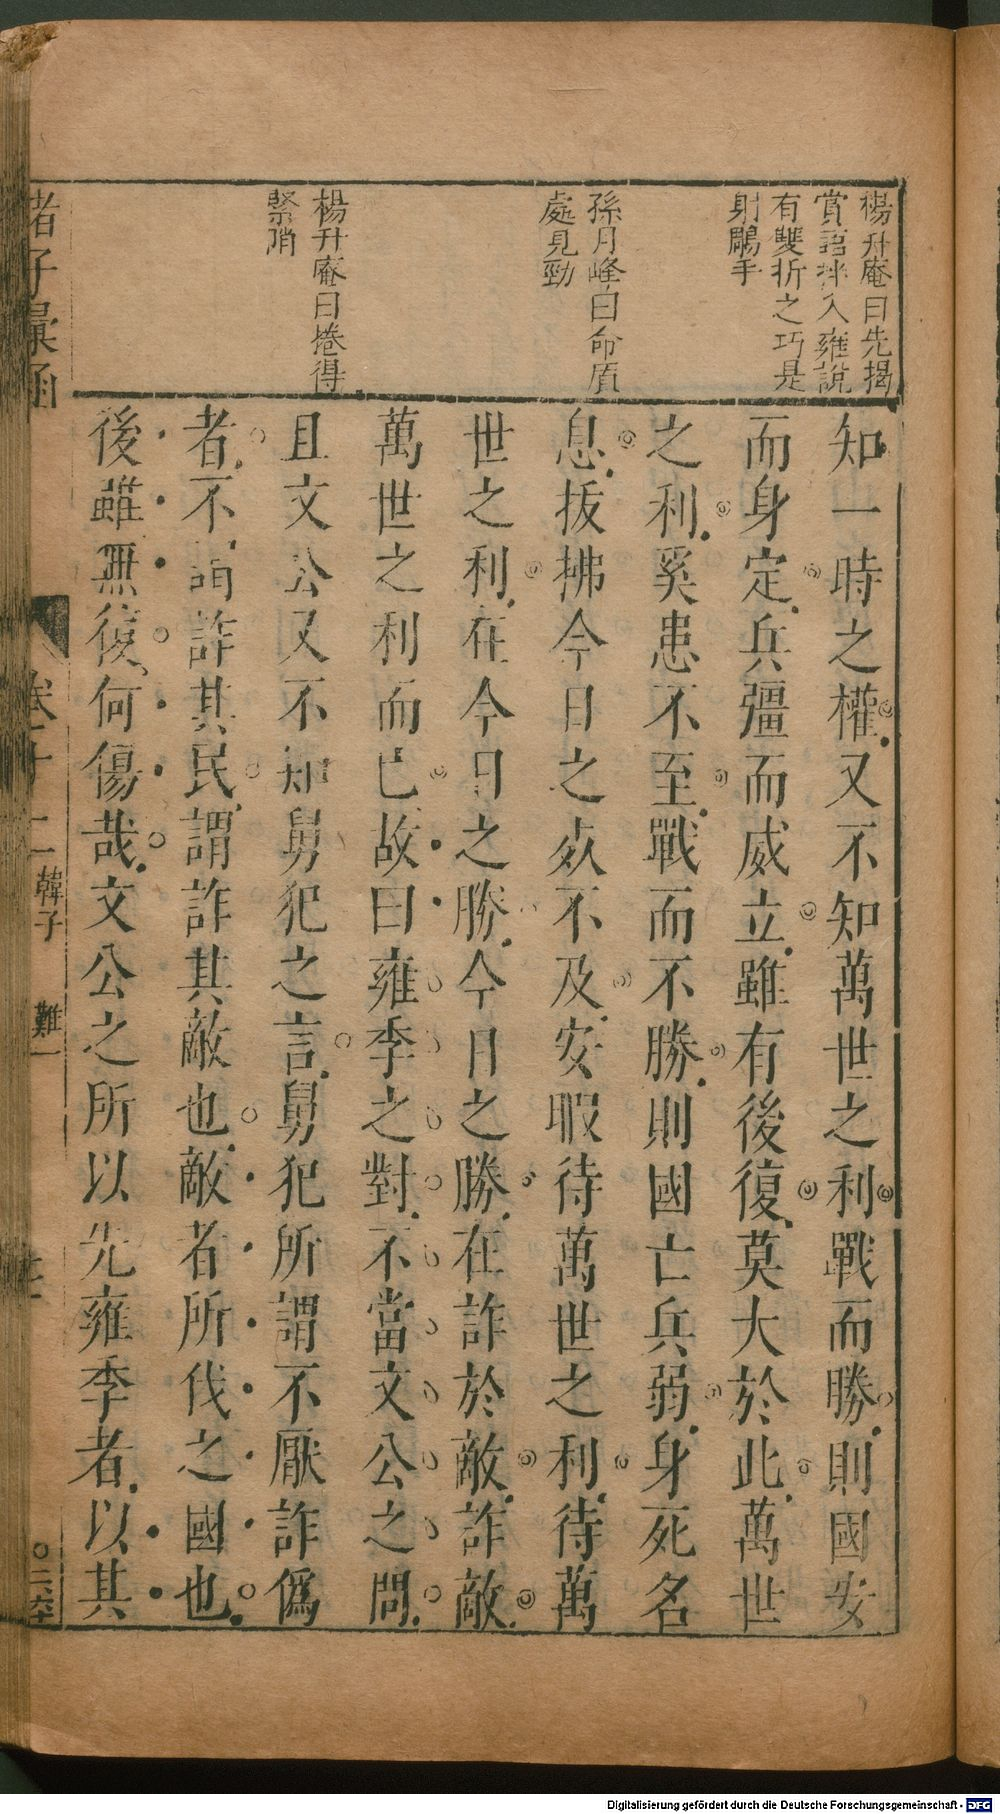 楊升庵曰先揭
賞語掉入雍說
有雙折之巧是
射鵰手
孫月峰曰命貭
處見勁
楊升庵曰捲得
緊陗
知一時之權又不知萬世之利戰而勝則國安
而身定兵彊而威立雖有後復莫大於此萬世
之利奚患不至戰而不勝則國亡兵弱身死名
息拔拂今日之死不及安暇待萬世之利待萬
世之利在今日之勝今日之勝在詐於敵詐敵
萬世之利而已故曰雍季之對不當文公之問
且文公又不知舅犯之言舅犯所謂不厭詐僞
者不謂詐其民謂詐其敵也敵者所伐之國也
後雖無復何傷哉文公之所以先雍季者以其
諸子彙函
卷十二 韓子 難一
〇二六
Digitalisierung gefördert durch die Deutsche Forschungsgemeinschaft - DFG